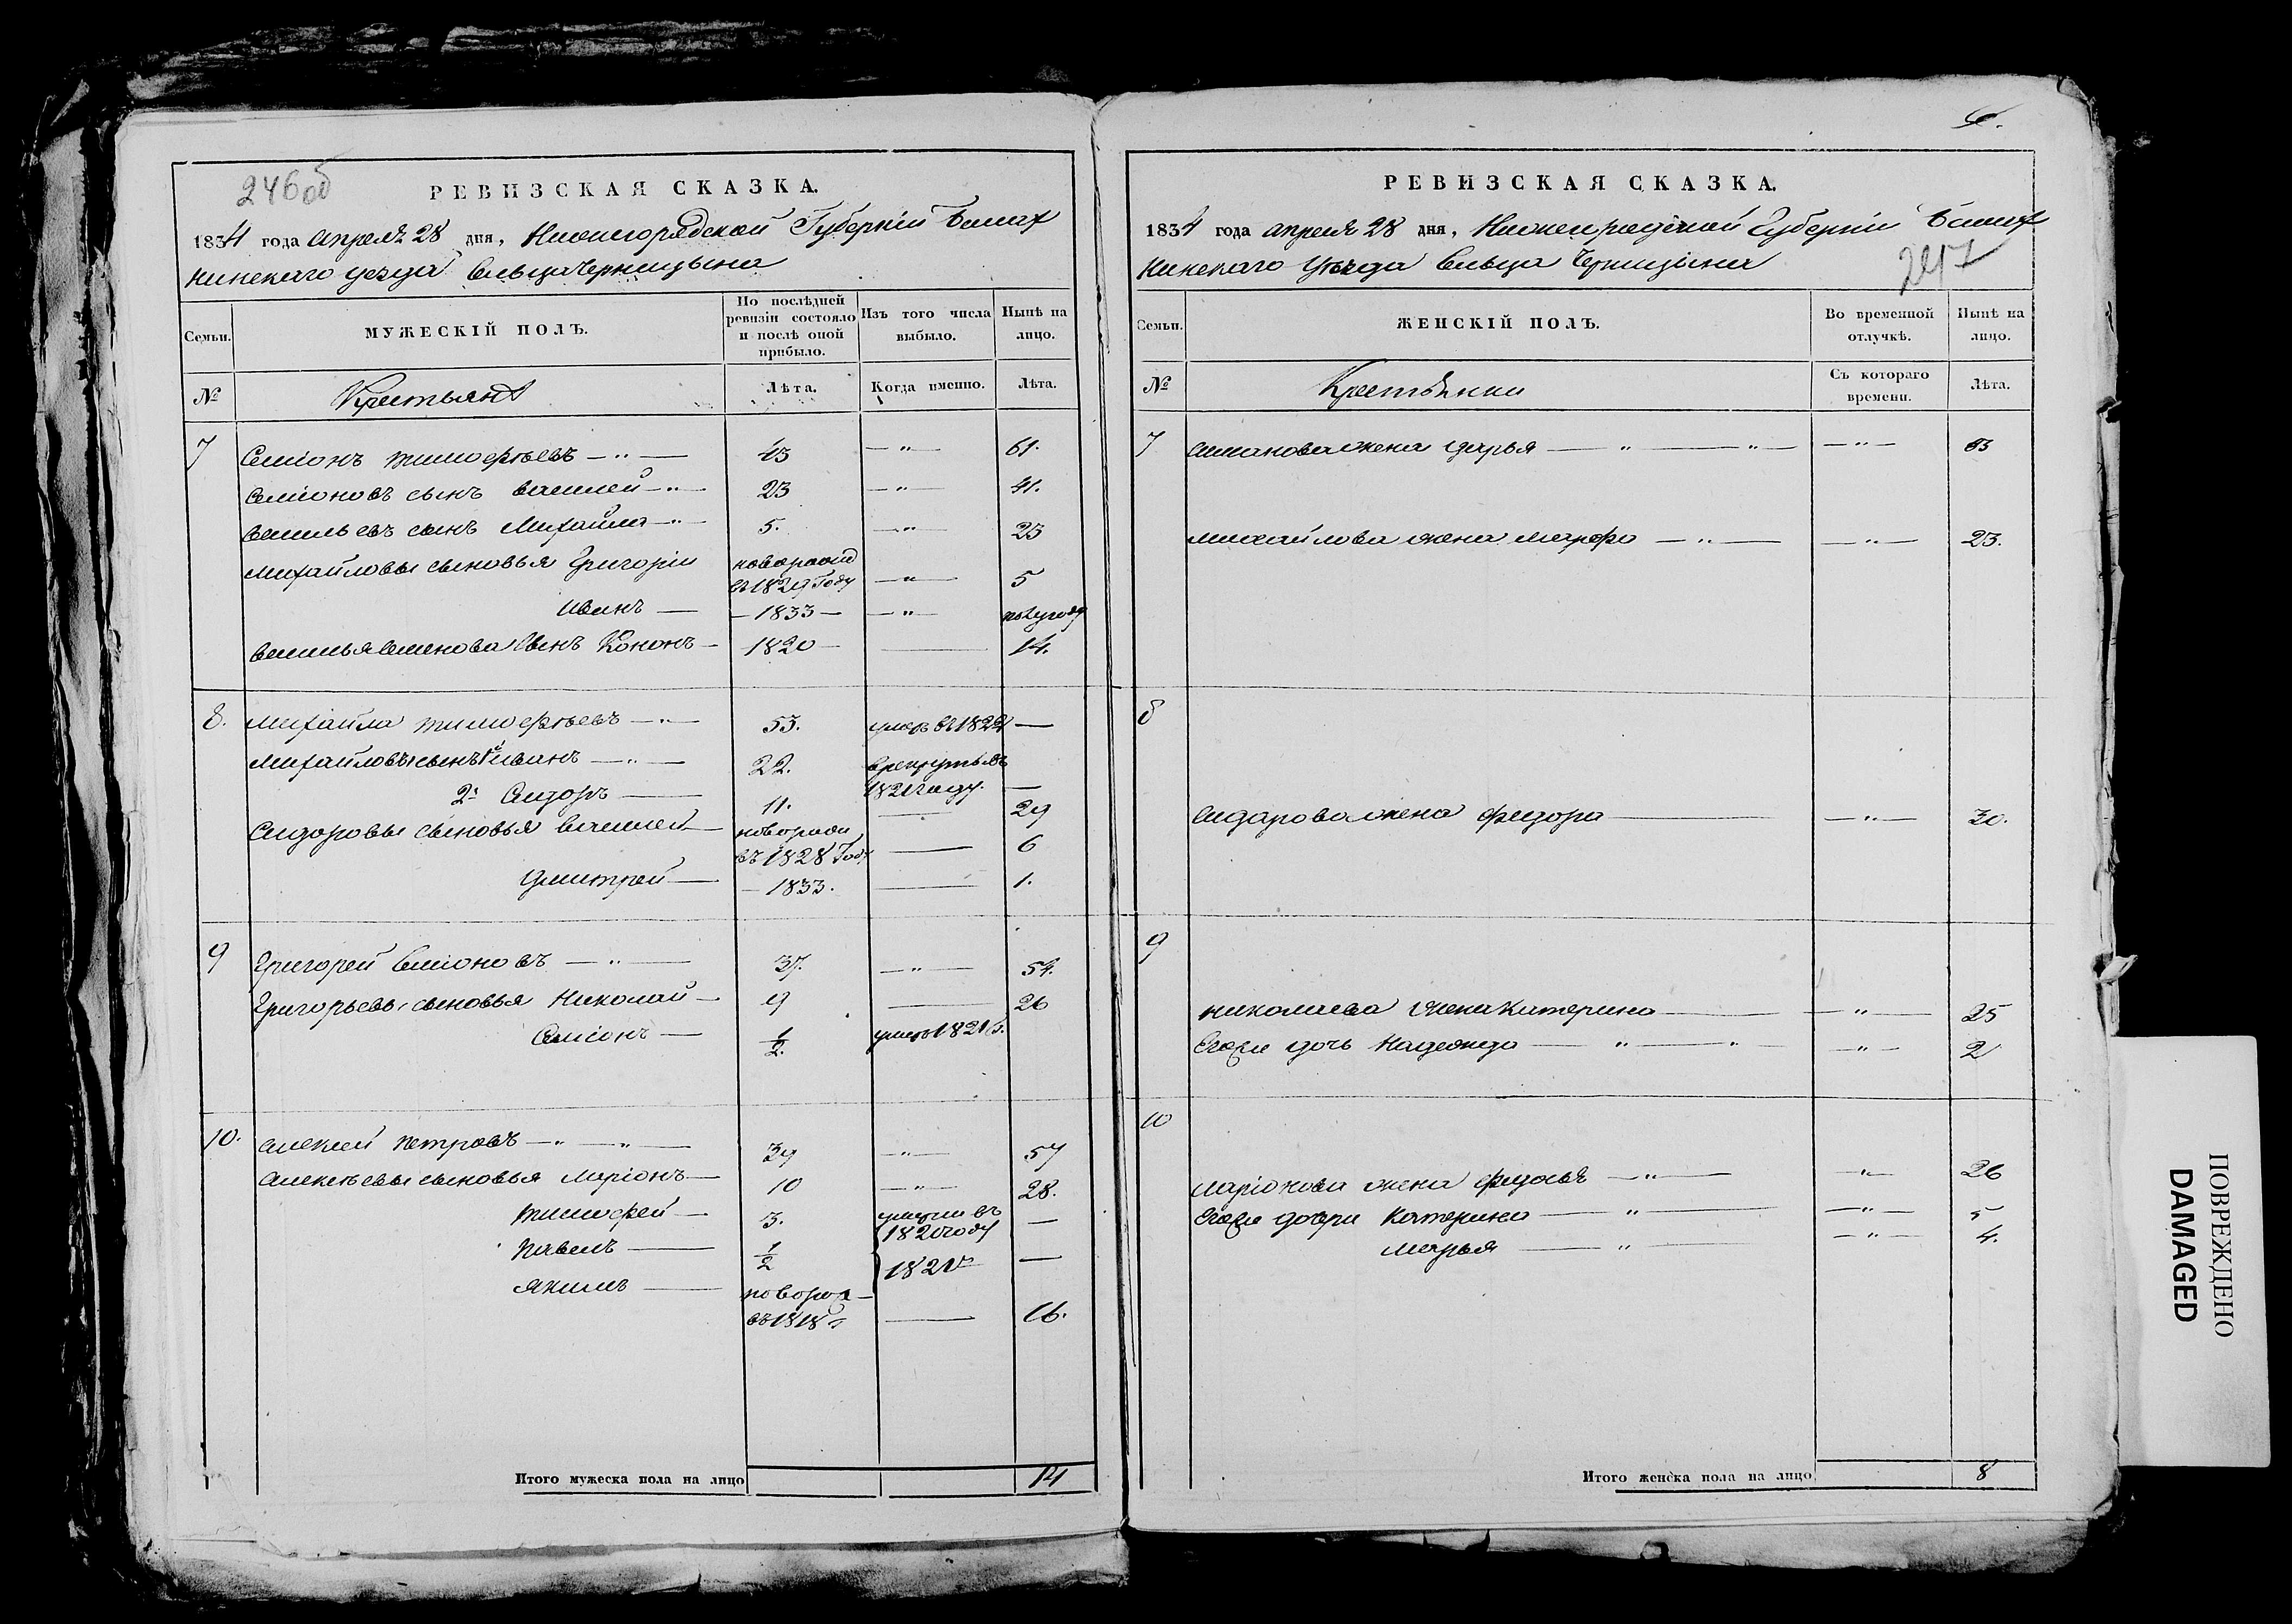 246об
РЕВИЗСКАЯ СКАЗКА.
1834 года апреля 28 дня, Нижегородской Губернии Балах
нинскаго уезда Сельца Черницына
Семьи.
МУЖЕСКІЙ ПОЛЪ.
По послѣдней ревизіи состояло и послѣ оной прибыло.
Изъ того числа выбыло.
Нынѣ на лицо.
№ Крестьянѣ Лѣта. Когда именно. Лѣта.
7 Семіонъ тимофѣевъ — " — 43 — " — 61.
Семіоновъ сынъ василей — " — 23 — " — 41.
васильевъ сынъ Михайла — " — 5. — " — 23
михайловы сыновья Григорій новорожд
въ 1829 году — " — 5
иванъ — — 1833 — — " — полугода
василья семенова сынъ Кононъ — 1820 — — 14.
8. михайла тимофѣевъ — " — 53. умер въ 1822 —
михайловы сынъ 1й иванъ — " — 22. врекруты въ
1821 году. —
2й Сидоръ — 11. — 29
Сидоровы сыновья василей — новорожд
въ 1828 году — 6
дмитрей — — 1833. — 1.
9 Григорей Семіоновъ — " — 37. — " — 54.
Григорьевы сыновья Николай — 9 — 26
Семіонъ — 1/2. умеръ 1821 г.
10. алексей петровъ — " — " — 39 — " — 57
алексѣевы сыновья ларіонъ — 10 — " — 28.
тимофей — 3. умерли въ
1820 году —
павелъ — 1/2 1821 г —
якимъ — новорож —
въ 1818 г — 16.
Итого мужеска пола на лицо 14
РЕВИЗСКАЯ СКАЗКА.
1834 года апреля 28 дня, Нижегородской Губерніи Балах
нинскаго Уѣзда Сельца Черницына
247
Семьи.
ЖЕНСКІЙ ПОЛЪ.
Во временной отлучкѣ.
Нынѣ на лицо.
№ Крестьянки Съ котораго времени. Лѣта.
7 жена дарья — " — " — — " — 63
михайлова жена марфа — " — — " — 23.
8
сидарова жена федора — — " — 30.
9
николаева жена Катерина — — " — 25
Егожъ дочь Надежда — " — " — " — 2
10
ларіонова жена федосья — " — — " — 26
Егожъ дочери Катерина — " — — " — 5
марья — " — — " — 4.
Итого женска пола на лицо 8
ПОВРЕЖДЕНО
DAMAGED